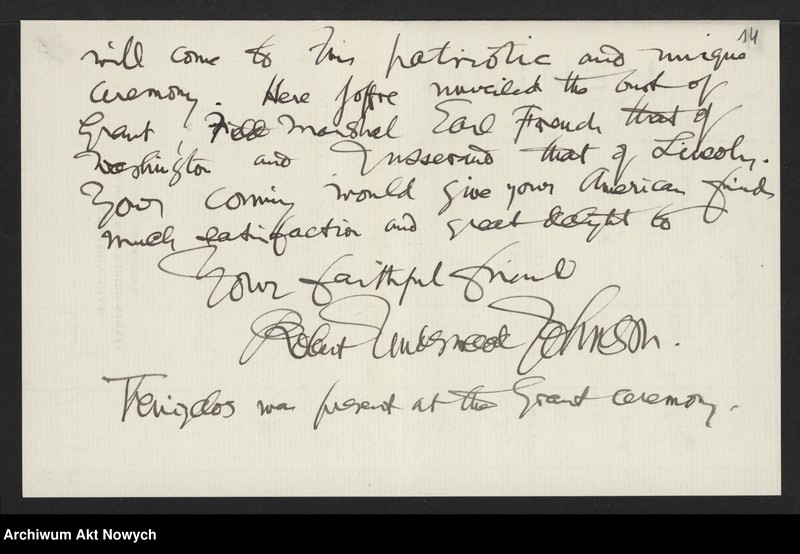 14
will come to this patriotic and unique
ceremony. Here Joffre unveiled the bust of
Grant, Field Marshal Earl French that of
Washington and Jusserand that of Lincoln.
Your coming would give your American friends
much satisfaction and great delight to
Your faithful friend
Robert Underwood Johnson.
was present at the Grant ceremony.
Archiwum Akt Nowych